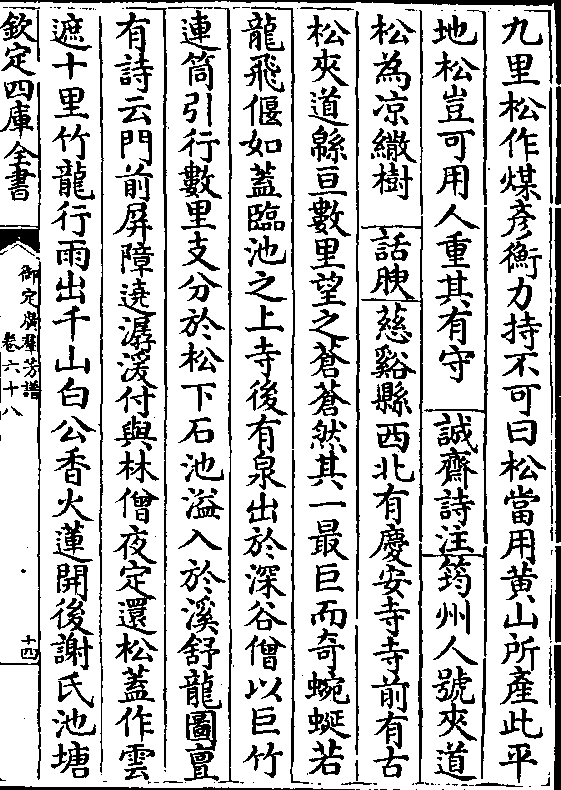 九里松作煤彦衡力持不可曰松當用黄山所産此平
地松豈可用人重其有守　誠齋詩注筠州人號夾道
松為凉繖樹　話腴慈谿縣西北有慶安寺寺前有古
松夾道緜亘數里望之蒼蒼然其一最巨而奇蜿蜒若
龍飛偃如蓋臨池之上寺後有泉出於深谷僧以巨竹
連筒引行數里支分於松下石池溢入於溪舒龍圖亶
有詩云門前屏障遶潺湲付與林僧夜定還松蓋作雲
遮十里竹龍行雨出千山白公香火蓮開後謝氏池塘
欽定四庫全書
御定廣羣芳譜
卷六十八
十四